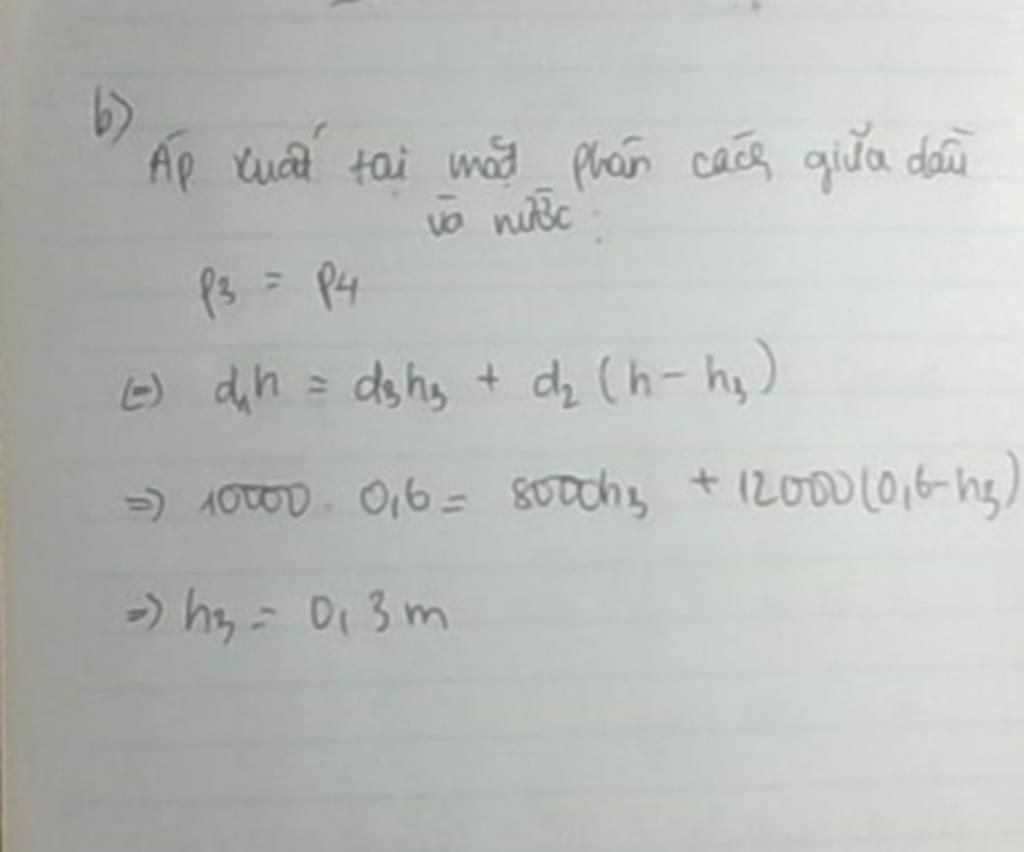 b)
Áp xuất tại mặt phân cách giữa dầu
và nước:
p3 = p4
(=) d1h = d3h3 + d2 (h - h3)
=) 10000 . 0,6 = 8000h3 + 12000(0,6-h3)
=) h3 = 0,3m